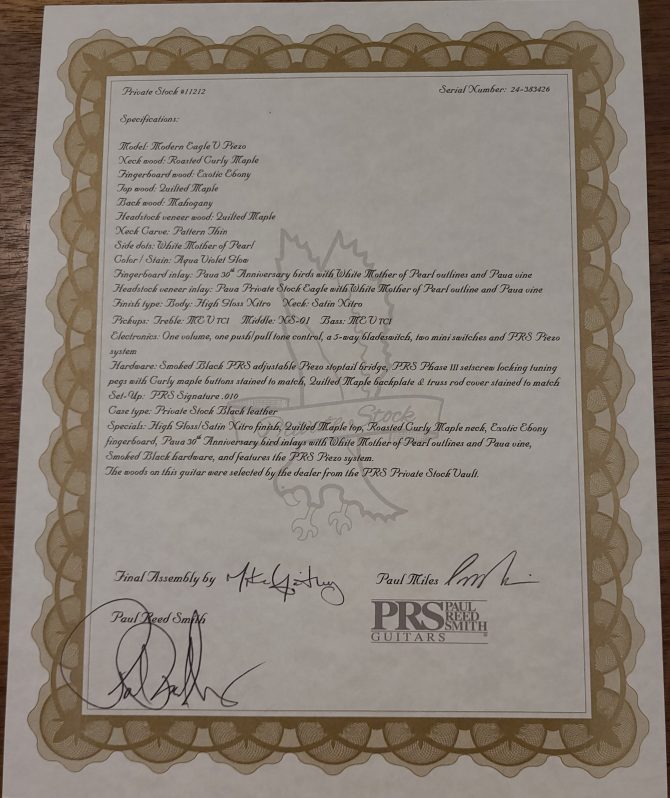 Private Stock #11212
Serial Number: 24-383426
Specifications:
Model: Modern Eagle V Piezo
Neck wood: Roasted Curly Maple
Fingerboard wood: Exotic Ebony
Top wood: Quilted Maple
Back wood: Mahogany
Headstock veneer wood: Quilted Maple
Neck Carve: Pattern Thin
Side dots: White Mother of Pearl
Color / Stain: Aqua Violet Glow
Fingerboard inlay: Paua 30th Anniversary birds with White Mother of Pearl outlines and Paua vine
Headstock veneer inlay: Paua Private Stock Eagle with White Mother of Pearl outline and Paua vine
Finish type: Body: High Gloss Nitro Neck: Satin Nitro
Pickups: Treble: ME V TCI Middle: NS-01 Bass: ME V TCI
Electronics: One volume, one push/pull tone control, a 5-way bladeswitch, two mini switches and PRS Piezo
system
Hardware: Smoked Black PRS adjustable Piezo stoptail bridge, PRS Phase III setscrew locking tuning
pegs with Curly maple buttons stained to match, Quilted Maple backplate & truss rod cover stained to match
Set-Up: PRS Signature .010
Case type: Private Stock Black leather
Stock
Specials: High Gloss/Satin Nitro finish, Quilted Maple top, Roasted Curly Maple neck, Exotic Ebony
fingerboard, Paua 30th Anniversary bird inlays with White Mother of Pearl outlines and Paua vine,
Smoked Black hardware, and features the PRS Piezo system.
The woods on this guitar were selected by the dealer from the PRS Private Stock Vault.
Final Assembly by
Paul Miles
Paul Reed Smith
PRS PAUL REED SMITH
GUITARS